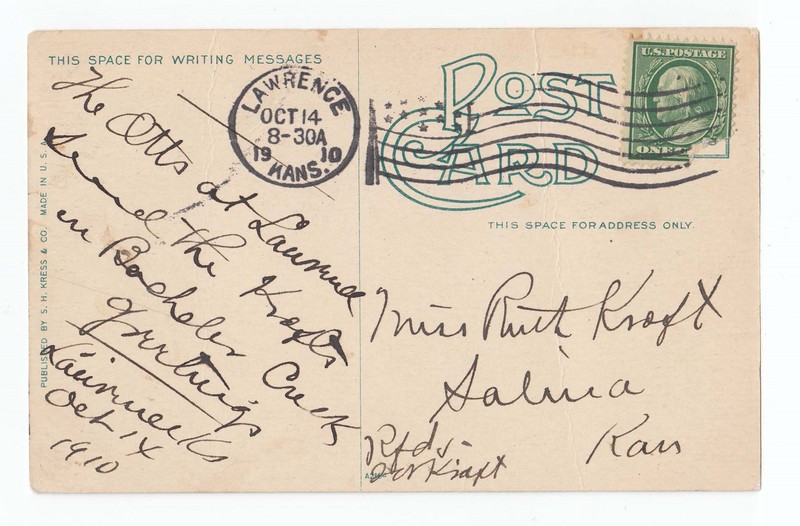 THIS SPACE FOR WRITING MESSAGES
The Otts at Lawrence
send the Krafts
in Bachelor Creek
greetings
Lawrence Ks
Oct 14
1910
PUBLISHED BY S. H. KRESS & CO. MADE IN U. S. A.
LAWRENCE
OCT 14
8-30A
1910
KANS.
POST
CARD
U.S. POSTAGE
ONE
THIS SPACE FOR ADDRESS ONLY.
Miss Ruth Kraft
Salina
Kan
Rfd 5
Kraft